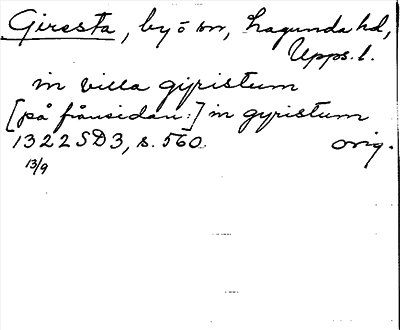 Giresta, by o sn, Lagunda hd,
Upps. l.
in villa gijristum
[på frånsidan:] in gyristum
1322 SD3, s. 560. orig.
13/9